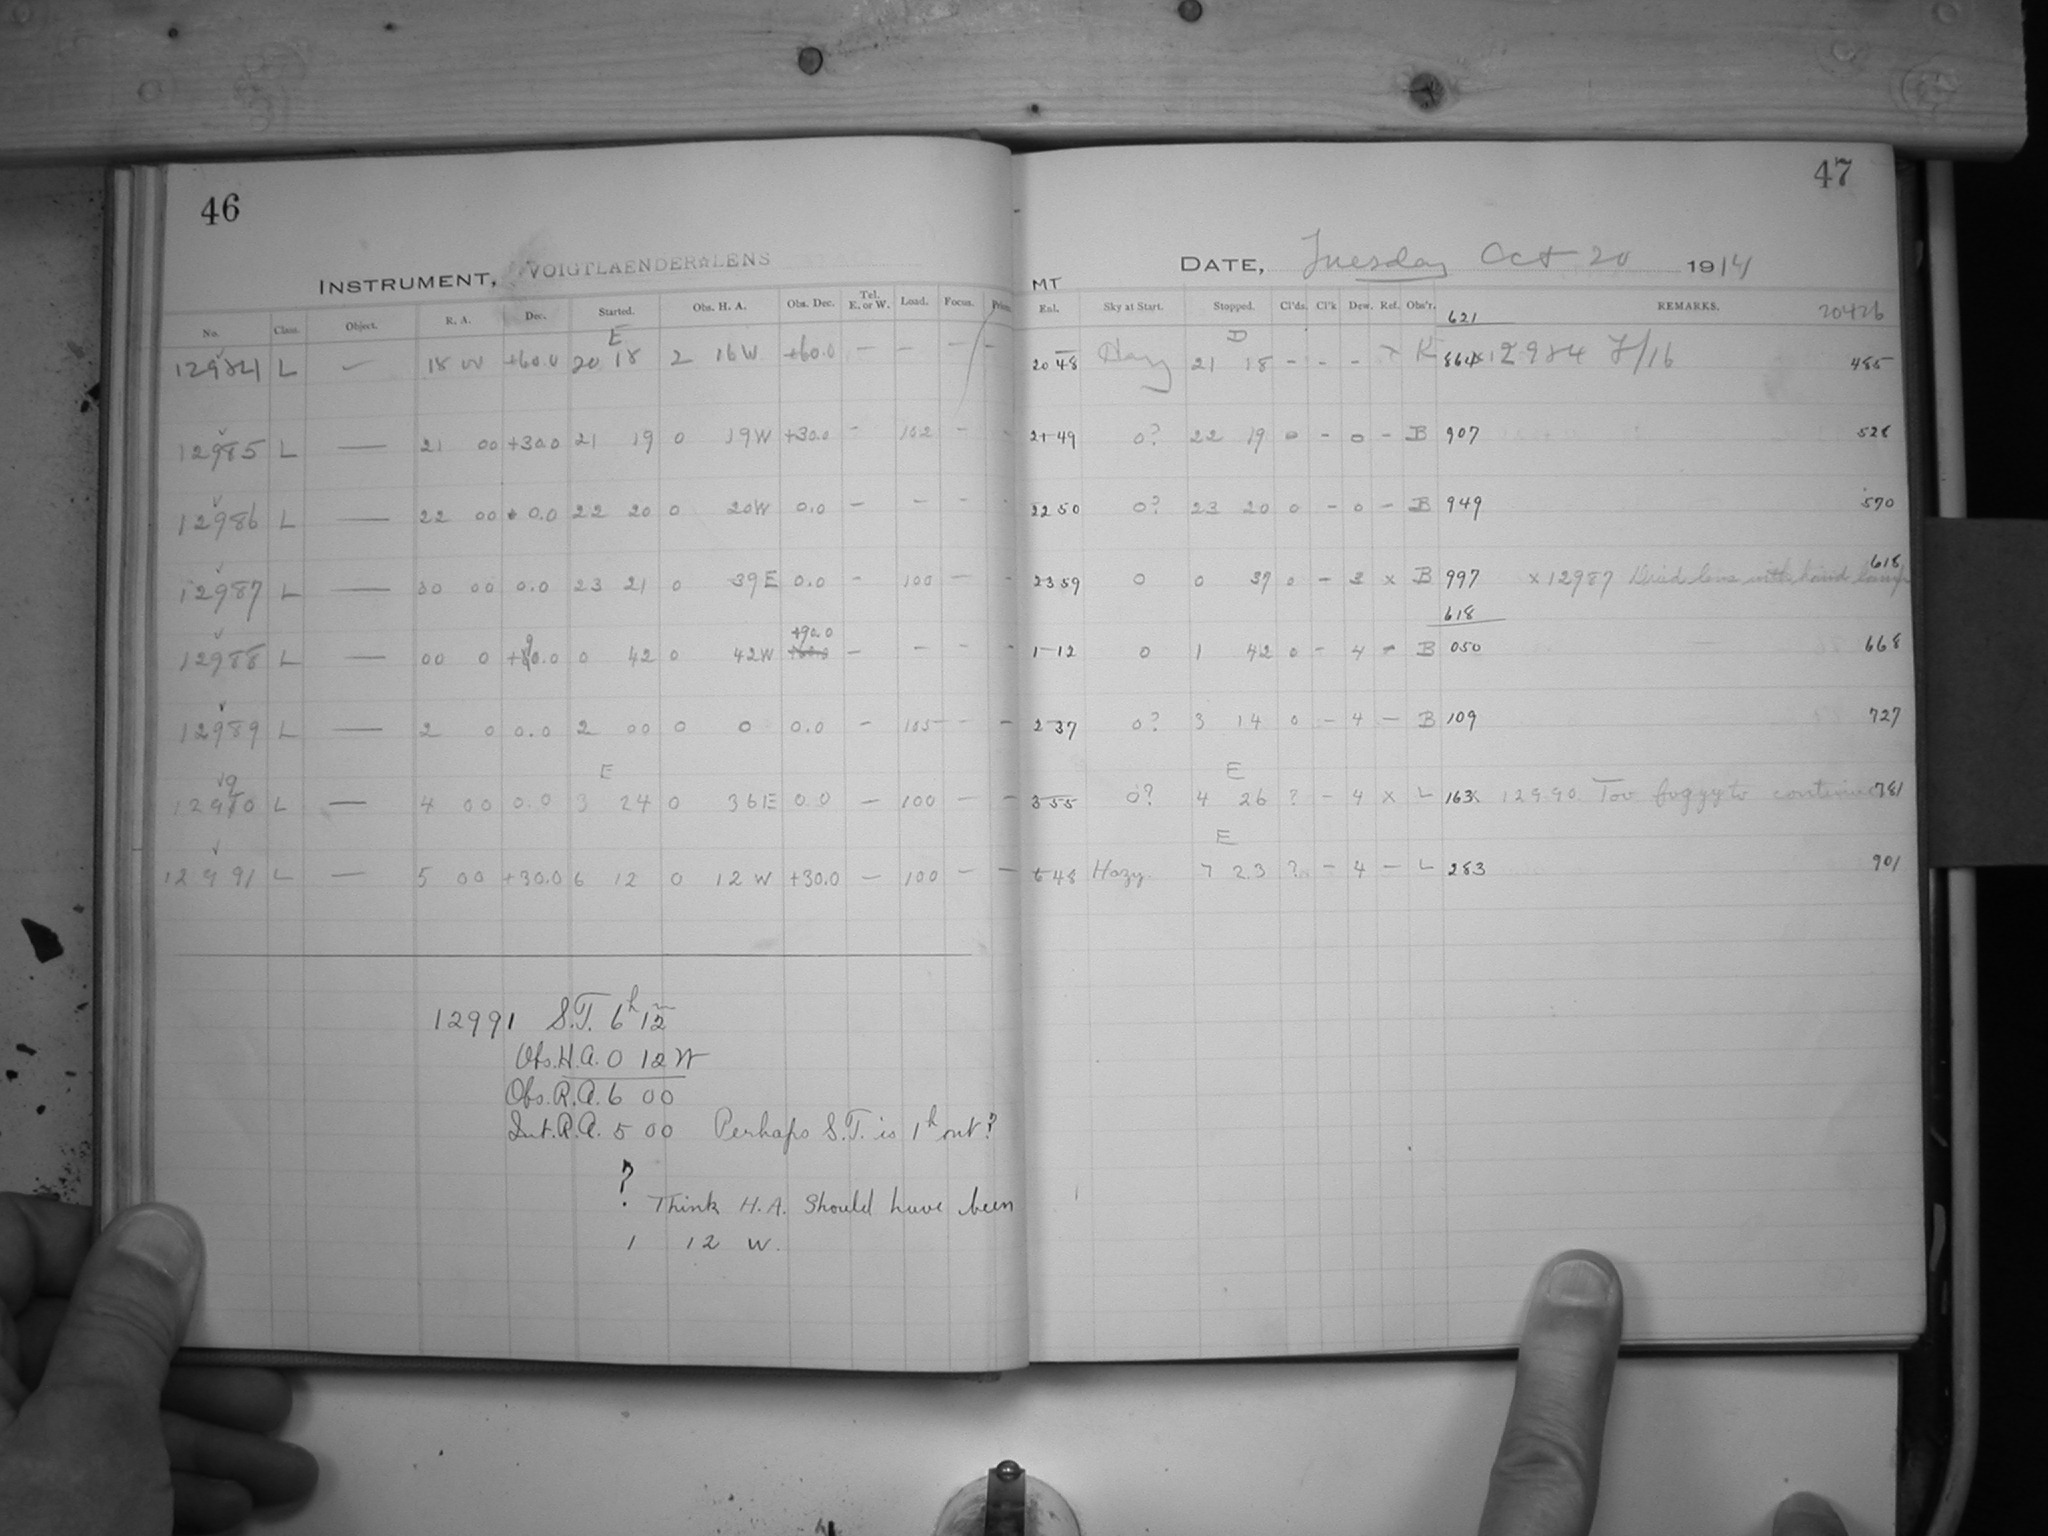 46
INSTRUMENT, VOIGTLAENDER LENS
No. Class. Object. R. A. Dec. Started. Obs. H. A. Obs. Dec. Tel. E. or W. Load. Focus.
E
12984 L — 18 00 +60.0 20 18 2 16W +60.0 — — — —
12985 L — 21 00 +30.0 21 19 0 19W +30.0 — 102 — —
12986 L — 22 00 0.0 22 20 0 20W 0.0 — — — —
12987 L — 00 00 0.0 23 21 0 39E 0.0 — 100 — —
+90.0
12988 L — 00 0 +90.0 0 42 0 42W — — — —
12989 L — 2 0 0.0 2 00 0 0 0.0 — 105 — —
E
12990 L — 4 00 0.0 3 24 0 36E 0.0 — 100 — —
12991 L — 5 00 +30.0 6 12 0 12 W +30.0 — 100 — —
12991 S.T. 6h 12m
Obs. H.A. 0 12 W
Obs. R.A. 6 00
Int. R.A. 5 00 Perhaps S.T. is 1h out?
?
Think H.A. Should have been
1 12 W.
47
DATE, Tuesday Oct 20 1914
MT
Enl. Sky at Start. Stopped. Cl'ds. Cl'k Dew. Ref. Obs'r. REMARKS. 20426
621
D
20 48 Hazy 21 18 - - - x K 864 x12984 F/16 485
21 49 0? 22 19 0 - 0 - B 907 528
22 50 0? 23 20 0 - 0 - B 949 570
23 59 0 0 37 0 - 3 x B 997 x 12987 Dried lens with hand lamp 618
618
1 12 0 1 42 0 - 4 - B 050 668
2 37 0? 3 14 0 - 4 - B 109 727
E
3 55 0? 4 26 ? - 4 x L 163 x 12990 Too foggy to continue 781
E
6 48 Hazy. 7 23 ? - 4 - L 283 901